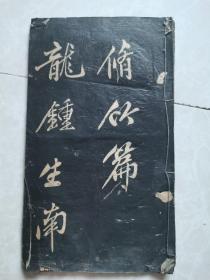 脩竹篇
龍鍾生南